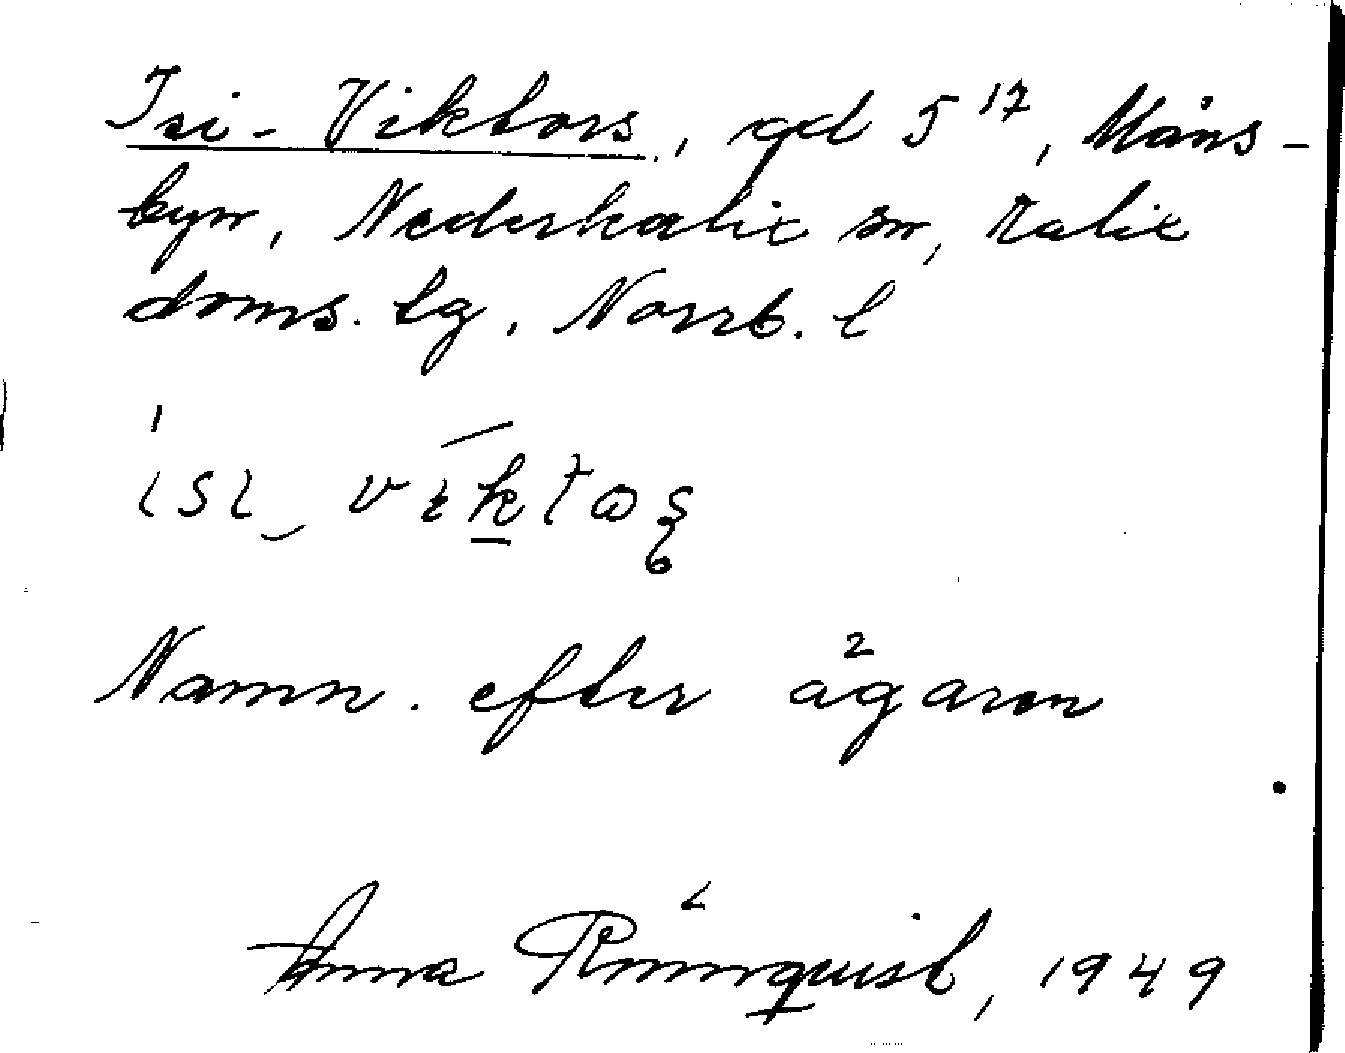 Isi-Viktors, gd 5¹⁷, Måns-
byn, Nederkalix sn, Kalix
doms. lg, Norrb. l
isi_ viktoʂ
Namn. efter ägaren
Anna Rönnquist, 1949